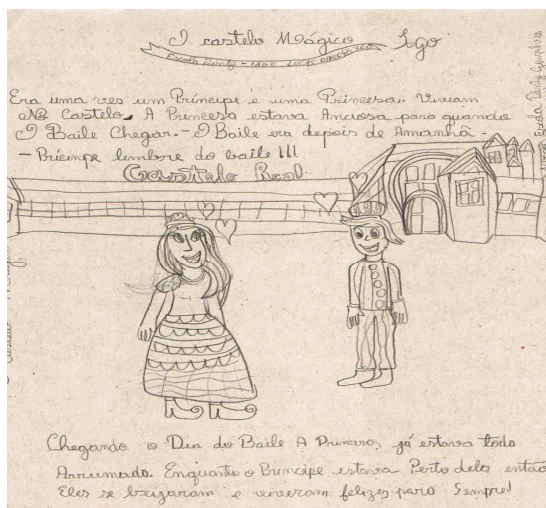 O castelo Mágico Igo
Era uma ves um Príncipe e uma Princesa. Viviam
No Castelo. A Princesa estava Anciosa para quando
O Baile Chegar. - O Baile era depois de Amanhã -
- Príncipe lembre do baile !!!
Castelo Real
Chegando o Dia do Baile A Princesa já estava todo
Arrumada. Enquanto o Príncipe estava Perto dela então
Eles se beijaram e viveram felizes para Sempre!